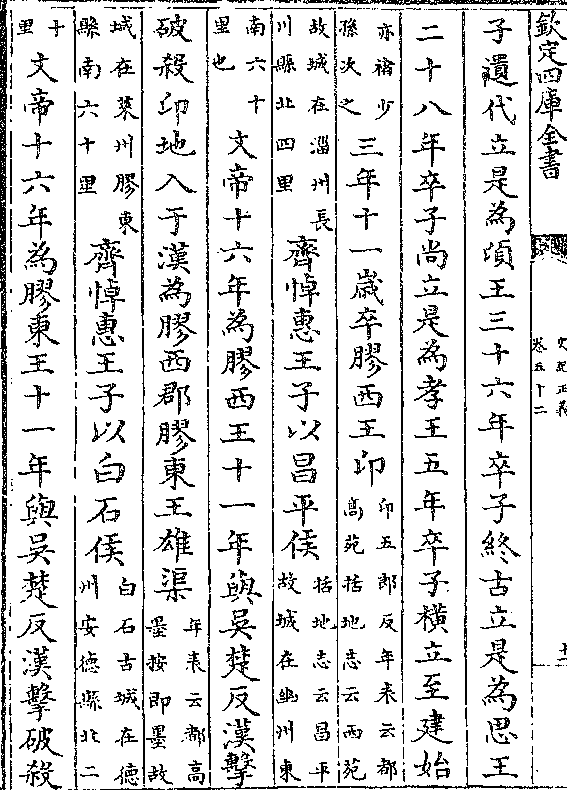 欽定四庫全書
史記正義
卷五十二
子遺代立是為頃王三十六年卒子終古立是為思王
二十八年卒子尚立是為孝王五年卒子橫立至建始
亦褚少
孫次之
三年十一歲卒膠西王卬
卬五郎反年表云都
高苑括地志云西苑
故城在淄州長
川縣北四里
齊悼惠王子以昌平侯
括地志云昌平
故城在幽州東
南六十
里也
文帝十六年為膠西王十一年與吳楚反漢擊
破殺卬地入于漢為膠西郡膠東王雄渠
年表云都高
墨按即墨故
城在萊州膠東
縣南六十里
齊悼惠王子以白石侯
白石古城在德
州安德縣北二
十
里
文帝十六年為膠東王十一年與吳楚反漢擊破殺